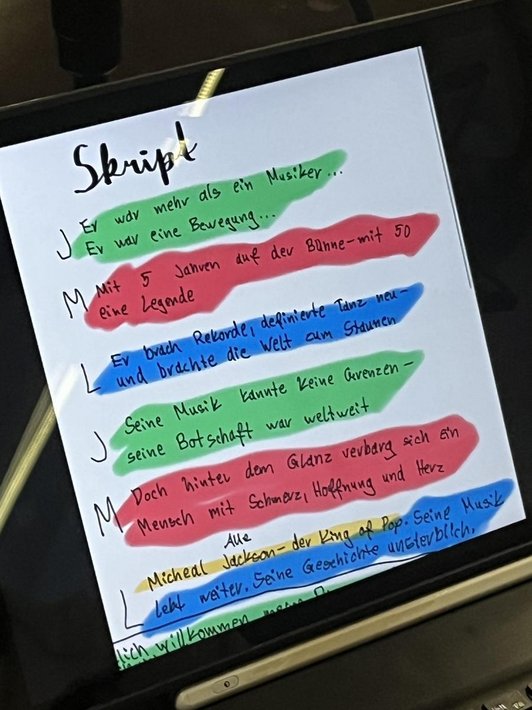 Skript
J Er war mehr als ein Musiker...
Er war eine Bewegung...
M Mit 5 Jahren auf der Bühne - mit 50
eine Legende
L Er brach Rekorde, definierte Tanz neu -
und brachte die Welt zum Staunen
J Seine Musik kannte keine Grenzen -
seine Botschaft war weltweit
M Doch hinter dem Glanz verbarg sich ein
Mensch mit Schmerz, Hoffnung und Herz
Alle
L Micheal Jackson - der King of Pop. Seine Musik
lebt weiter. Seine Geschichte unsterblich.
lich willkommen